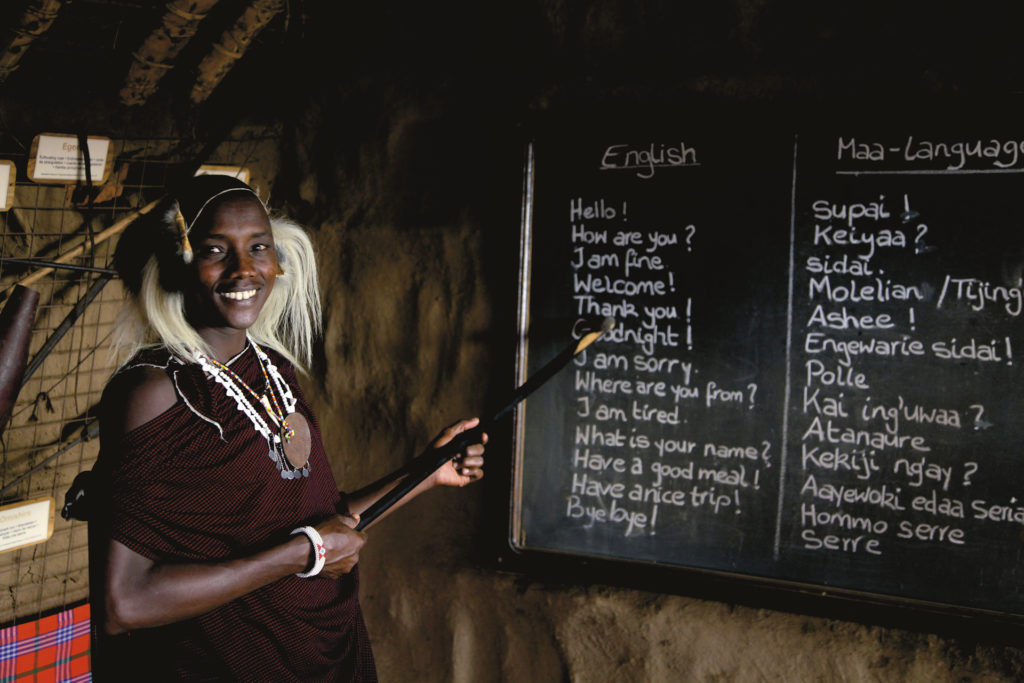 English
Hello !
How are you ?
I am fine
Welcome!
Thank you !
I am sorry.
Where are you from?
I am tired.
What is your name?
Have a good meal!
Have a nice trip!
Byebye!
Maa-Language
Supai !
Keiyaa ?
sidai.
Molelian /Tijing'
Ashee !
Engewarie sidai!
Polle
Kai ing'uwaa ?
Atanaure
Kekiji ngay ?
Aayewoki edaa
Hommo serre
serre